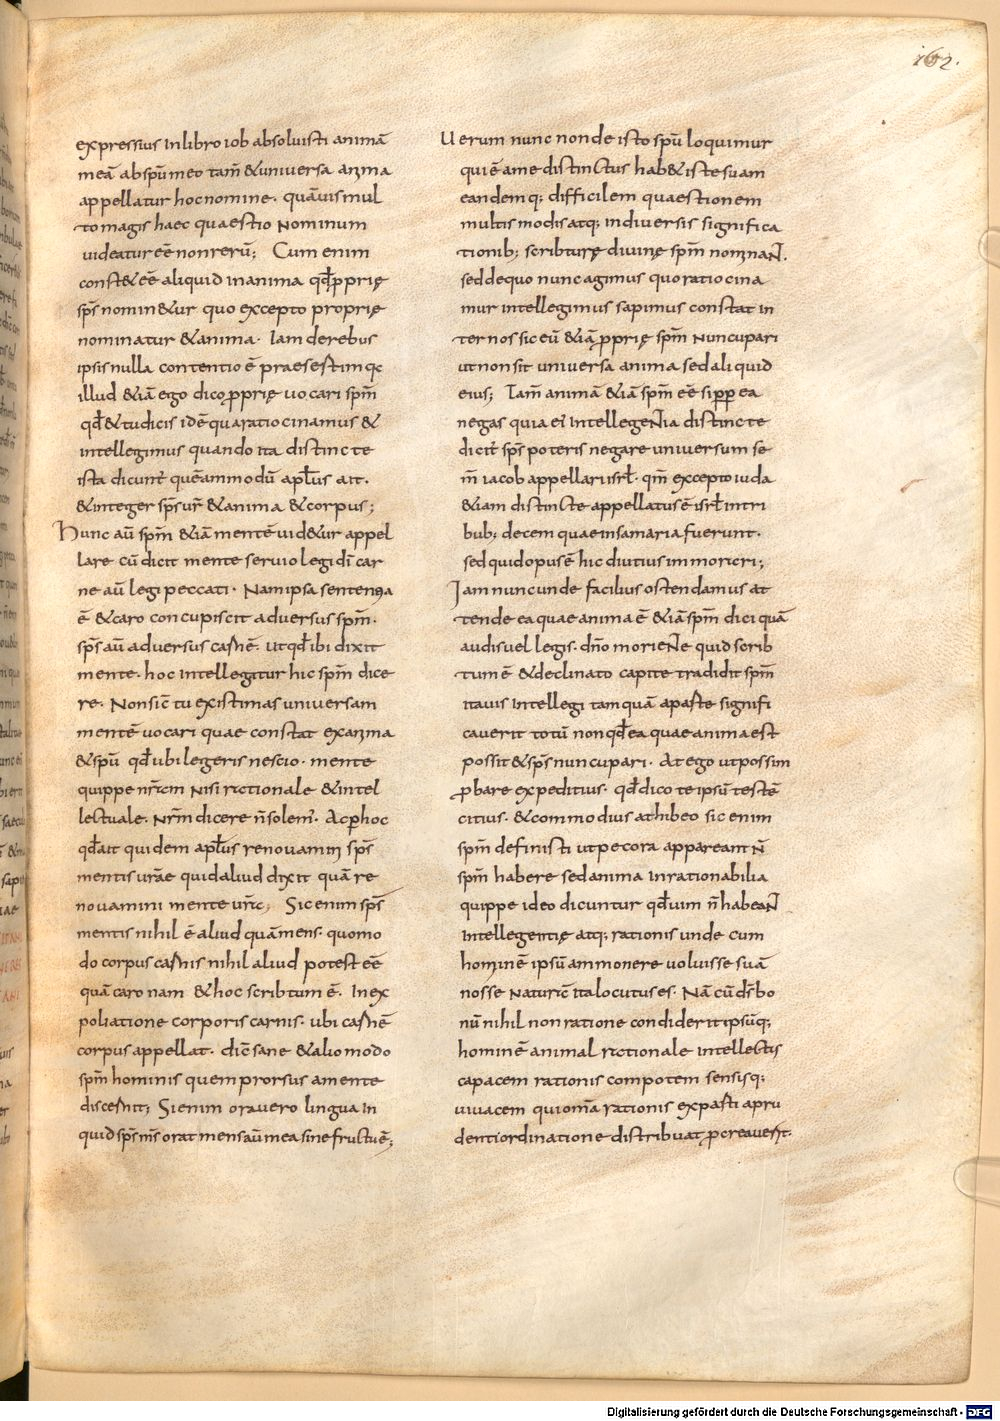 162.
expressius in libro iob absoluisti animā
meā ab spū meo tam̄ & universa anima
appellatur hoc nomine. quāuis mul
to magis haec quaestio nominum
videatur eē non rerū; Cum enim
const& eē aliquid in anima qđ p̄prię
sp̄s nomin&ur quo excepto proprię
nominatur & anima. Iam de rebus
ipsis nulla contentio ē praesestim q̄
illud &iā ego dico p̄prię uocari sp̄m
qđ & tu dicis idē qua ratiocinamus &
intellegimus quando ita distincte
ista dicunt̄ quēammodū aplūs ait.
& integer sp̄s ur̄ & anima & corpus;
Hunc aū sp̄m &iā mentē uid&ur appel
lare cū dicit mente servio legi dī car
ne aū legi peccati. Nam ipsa sententia
ē & caro concupiscit adversus sp̄m.
sp̄s aū adversus carnē. ut qđ ibi dixit
mente. hoc intellegitur hic sp̄m dice
re. Non sic tu existimas universam
mentē uocari quae constat ex anima
& sp̄u qđ ubi legeris nescio. mente
quippe nr̄am nisi rationale & intel
lectuale. Nr̄m dicere n̄ solem̄. Ac p̄ hoc
qđ ait quidem aplūs renouamini sp̄s
mentis ur̄ae quid aliud dixit quā re
nouamini mente ur̄a; Sic enim sp̄s
mentis nihil ē aliud quā mens. quomo
do corpus carnis nihil aliud potest eē
quā caro nam & hoc scribtum ē. In ex
poliatione corporis carnis. ubi carnē
corpus appellat. dīc sane & alio modo
sp̄m hominis quem prorsus a mente
discernit; Si enim oravero lingua in
quid sp̄s m̄s orat mens aū mea sine fructu ē;
Uerum nunc non de isto sp̄u loquimur
qui ē a me distinctus hab& iste suam
eandemq; difficilem quaestionem
multis modis atq; in diversis significa
tionib; scribturę divinę sp̄m nominant.
sed de quo nunc agimus quo ratiocina
mur intellegimus sapimus constat in
ter nos sic eū &iā p̄prię sp̄m nuncupari
ut non sit universa anima sed aliquid
eius; Iam̄ animā &iā sp̄m eē si p̄p̄ ea
negas quia ei intellegentia distincte
dicit̄ sp̄s poteris negare universum se
m̄ iacob appellari isrl̄. qm̄ excepto iuda
&iam distincte appellatus ē isrl̄ in tri
bub; decem quae in samaria fuerunt.
sed quid opus ē hic diutius immorari;
Iam nunc unde facilius ostendamus at
tende ea quae anima ē &iā sp̄m dici quā
audis uel legis. dn̄o moriente quid scrib
tum ē & declinato capite tradidit sp̄m
ita uis intellegi tamquā a parte signifi
caverit totū non qđ ea quae anima est
possit & sp̄s nuncupari. At ego ut possim
p̄bare expeditius. qđ dico te ipsū testē
citius. & commodius athibeo sic enim
sp̄m definisti ut pecora appareant n̄
sp̄m habere sed anima inrationabilia
quippe ideo dicuntur qđ uim n̄ habeant
intellegentię atq; rationis unde cum
hominē ipsū ammonere uoluisse suā
nosse naturā ita locutus es. Nā cū d̄s bo
nū nihil non ratione condiderit ipsūq;
hominē animal rationale intellectis
capacem rationis compotem sensisq;
uiuacem qui om̄a rationis exparti a pru
denti ordinatione distribuat p̄creaverit.
Digitalisierung gefördert durch die Deutsche Forschungsgemeinschaft - DFG